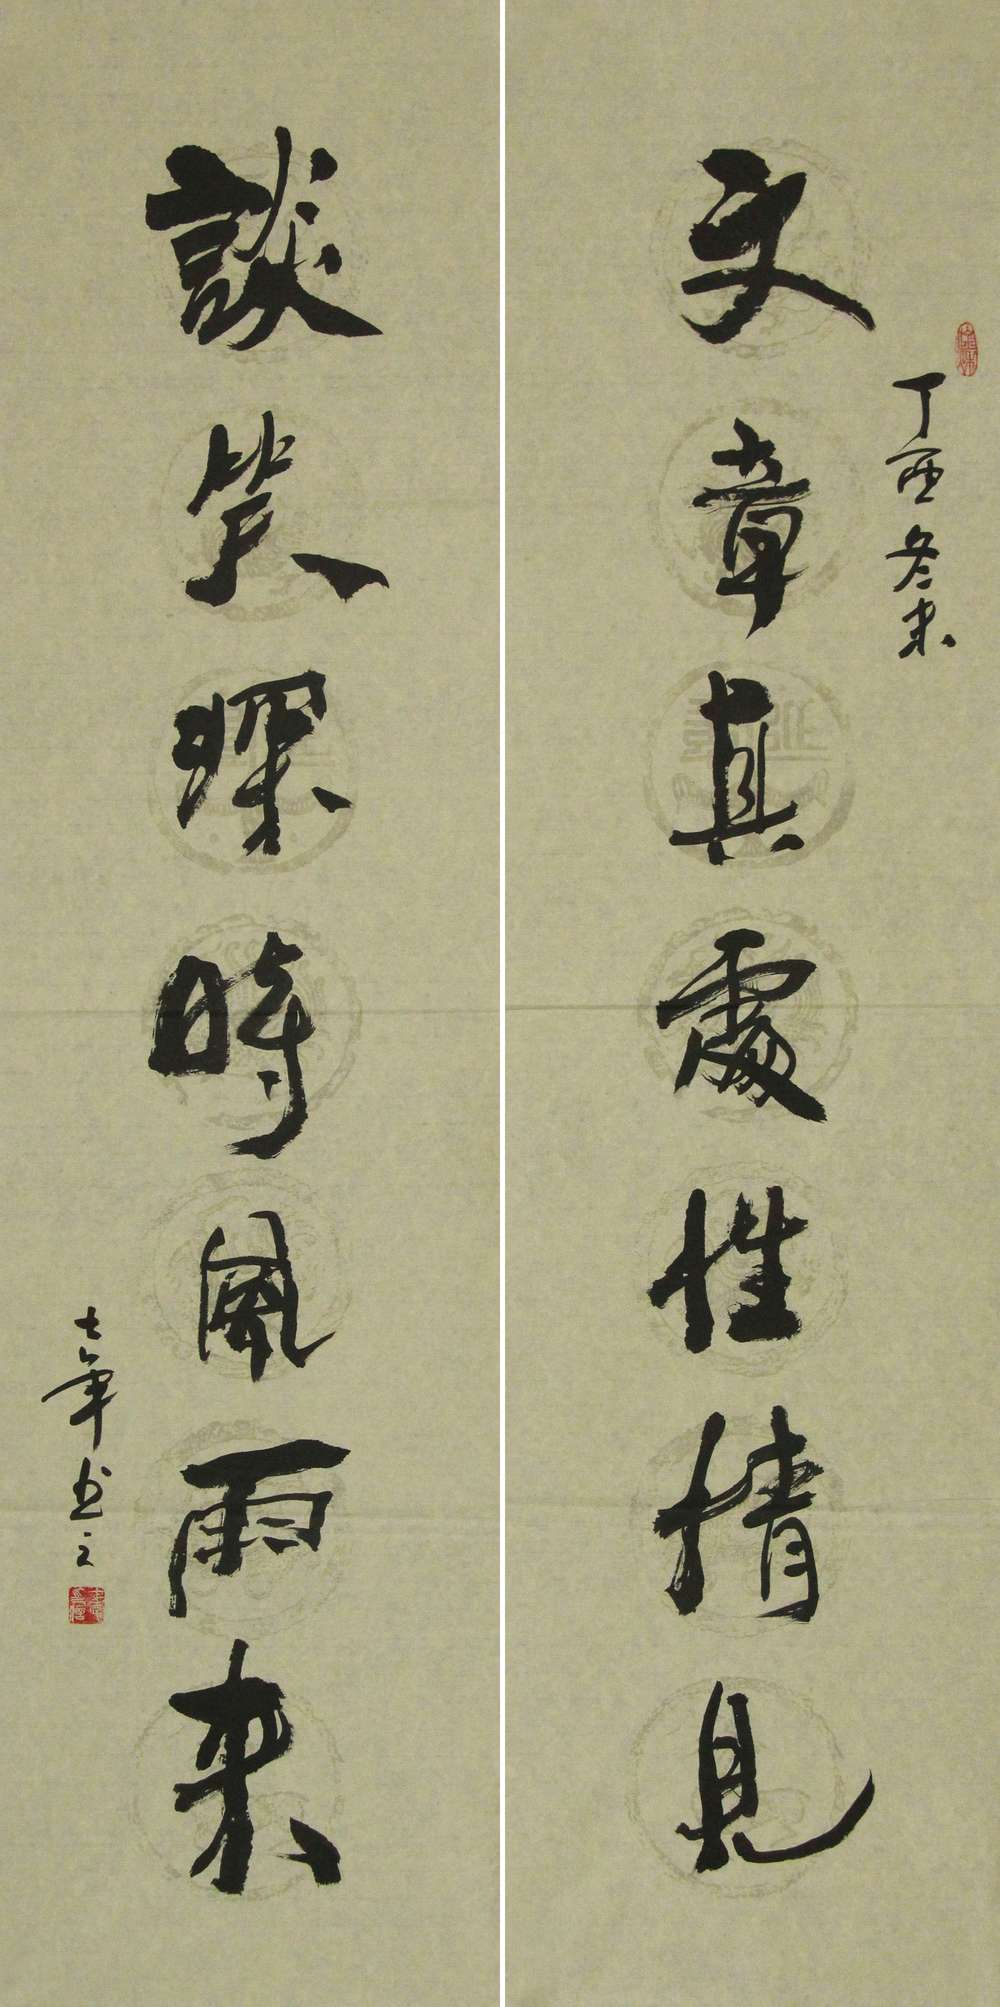 丁酉冬末
文章真處性情見
談笑深時風雨來
士軍书之